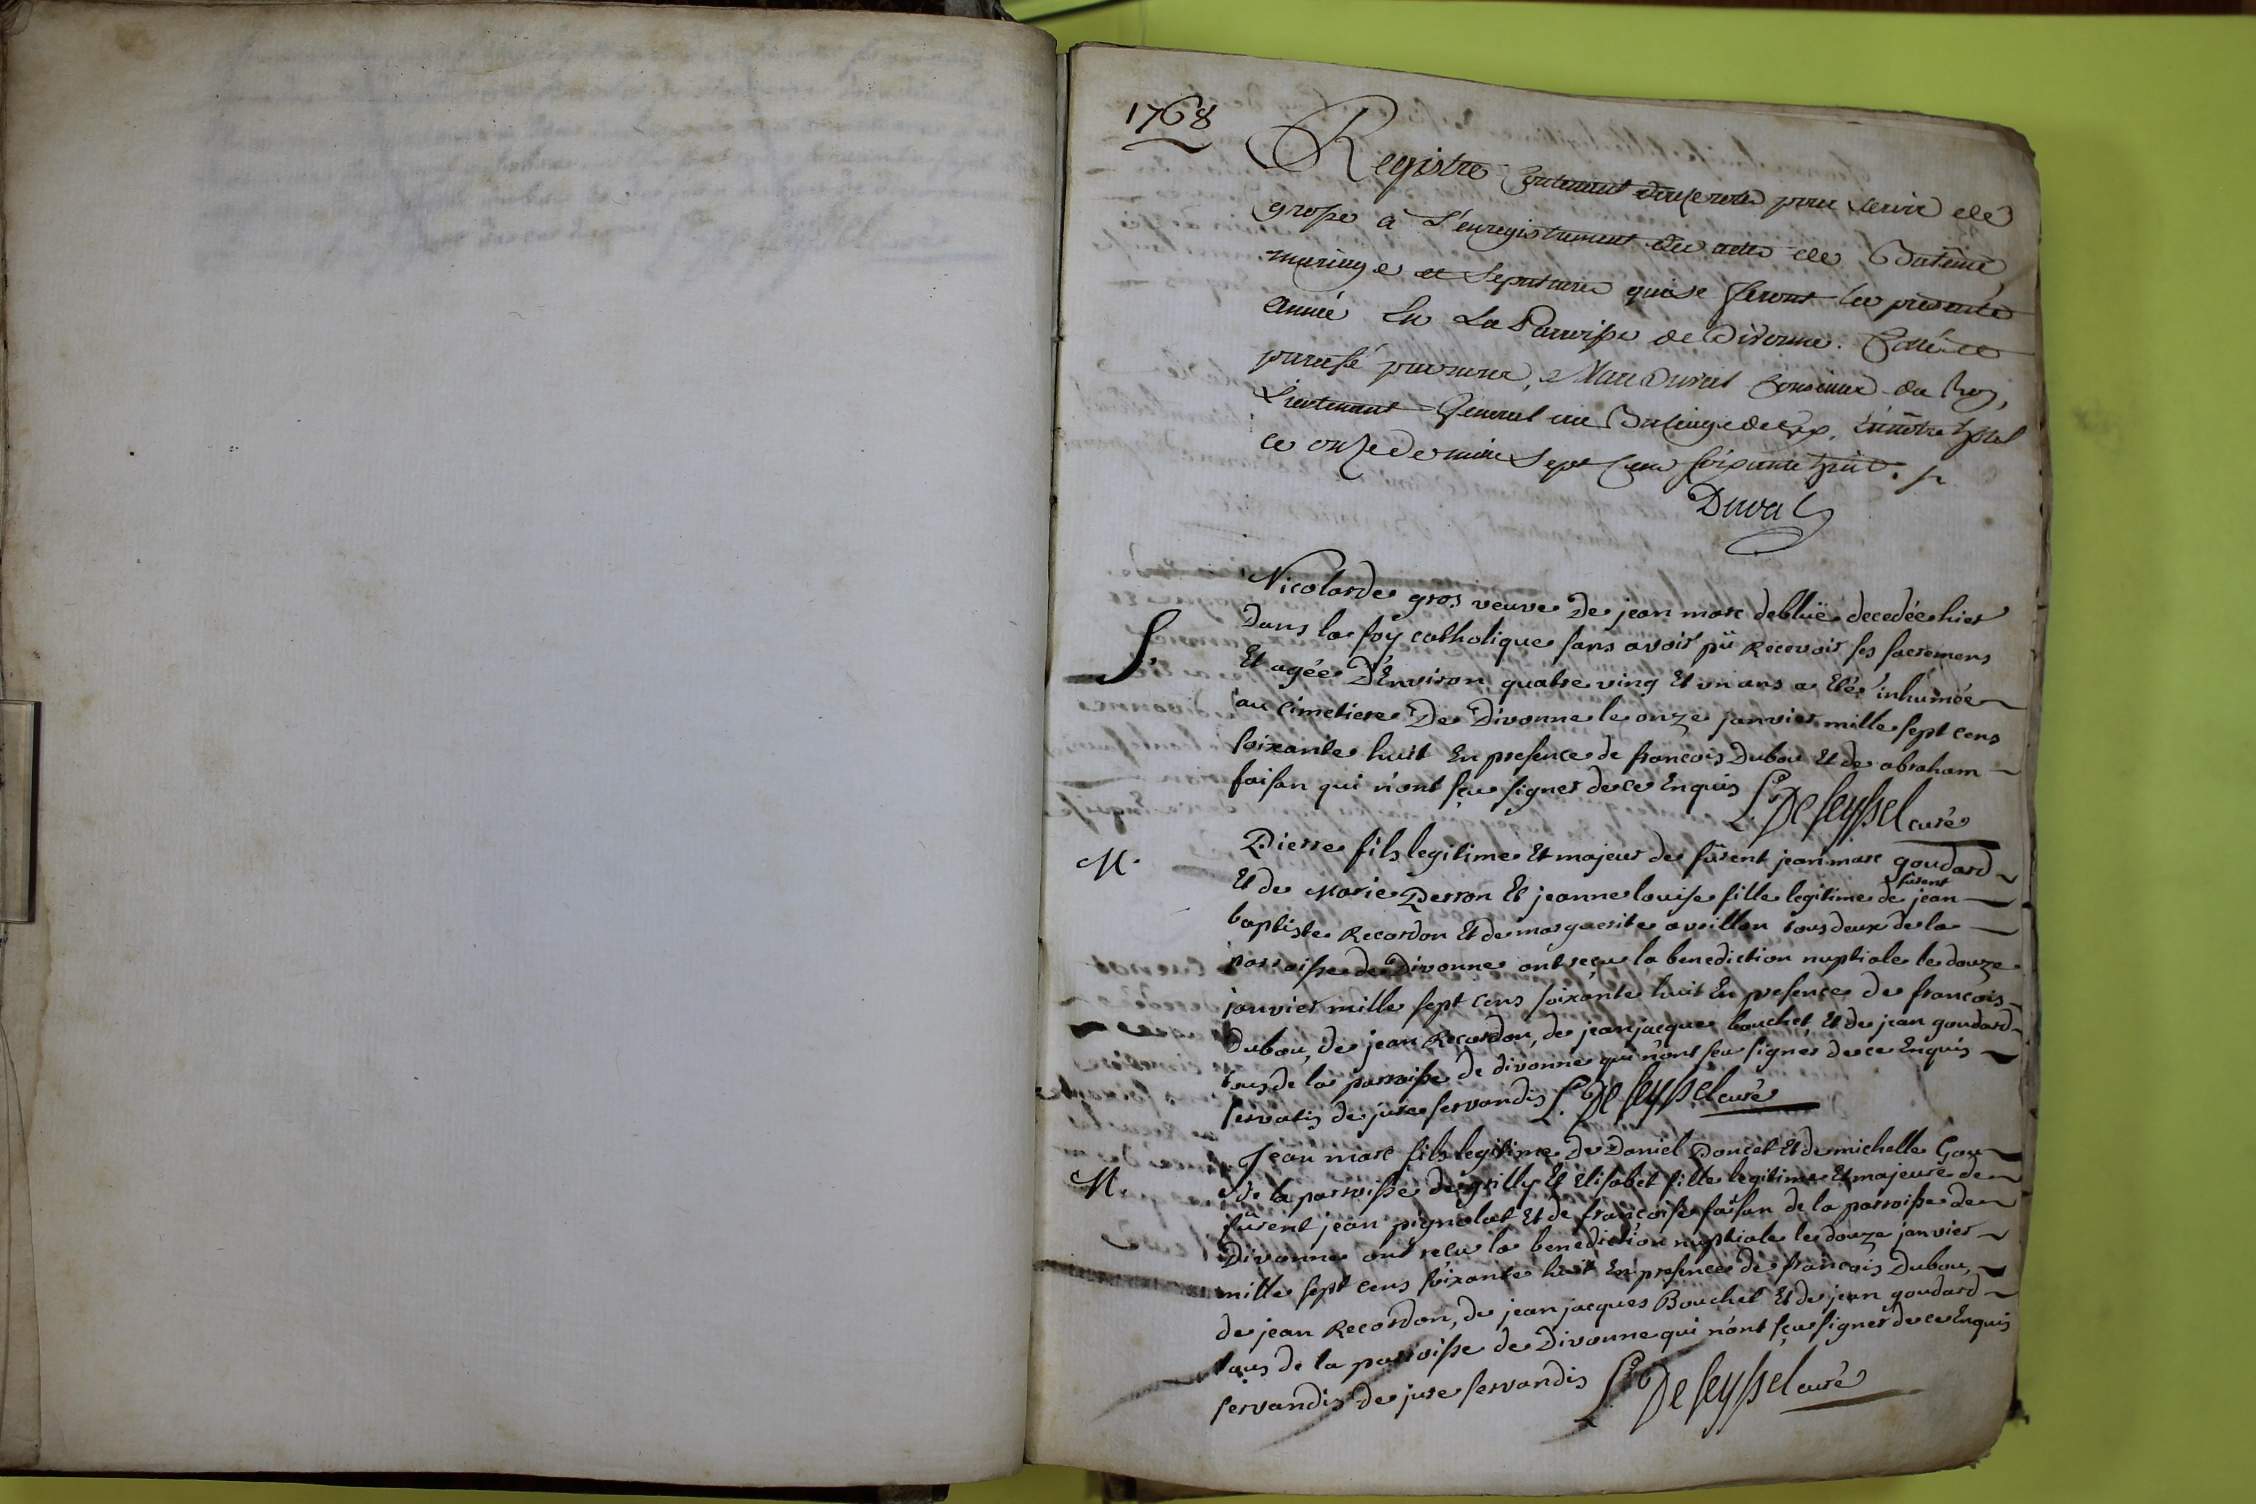 1768
Registre contenant douze rolles pour servir de
grosse à L'enregistrement des actes de Batême
mariage et sepulture qui se feront la presente
année En La Parroisse de Divonne. Cotté et
paraffé par nous, Marc Duval Conseiller du Roy,
Lieutenant General au Baliage de Gex, En nôtre hôtel
ce onze de mille sept cens soixante huit.
Duval
Nicolarde gros veuve De jean marc debluë decedée hier
S. Dans la foÿ catholique sans avoir pû Recevoir ses sacremens
Et agée D'Environ quatre ving Et un ans a Eté inhumée
au Cimetiere De Divonne le onze janvier mille sept cens
soixante huit En presence de françois Dubou Et de abraham
faisan qui n'ont sçu signer de ce Enquis De Seyssel curé
M. Pierre fils legitime Et majeur de fûrent jean marc goudard
Et de Marie Perron Et jeanne louise fille legitime de fûrent jean
baptiste Recordon Et de marguerite avrillon tous deux de la
parroisse de Divonne ont reçu la benediction nuptiale le douze
janvier mille sept cens soixante huit En presence de françois
Dubou, de jean Recordon, de jean jacque bouchet, Et de jean goudard
tous de la parroisse de divonne qui n'ont sçu signer de ce Enquis
servatis de jure servandis De Seyssel curé
M. Jean marc fils legitime De Daniel Poncet Et de michelle Gou
de la parroisse de grilly Et Elisabet fille legitime Et majeure de
fûrent jean pignolat Et de françoise faisan de la parroisse de
Divonne ont reçu la benediction nuptiale le douze janvier
mille sept cens soixante huit En presence de françois Dubou,
de jean Recordon, de jean jacques Bouchet Et de jean goudard
tous de la parroisse de Divonne qui n'ont sçu signer de ce Enquis
servandis de jure servandis De Seyssel curé